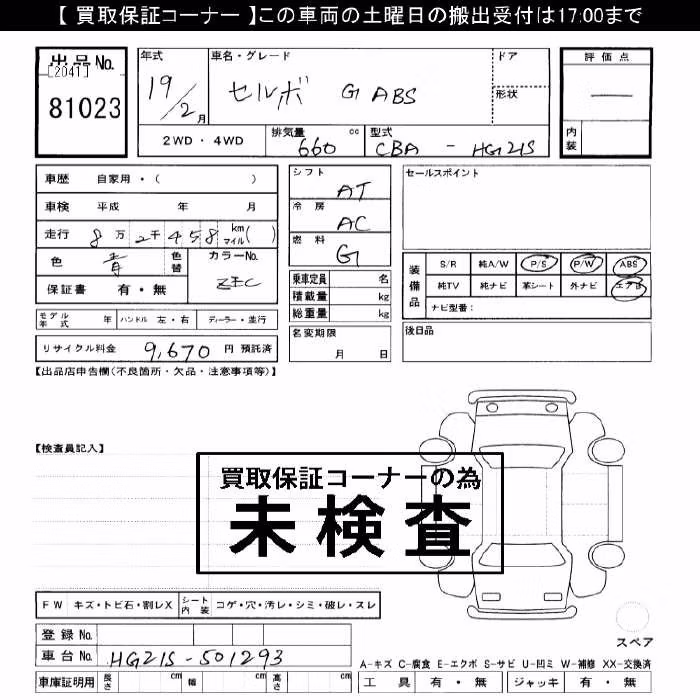 【 買取保証コーナー 】この車両の土曜日の搬出受付は17:00まで
出品No.
[2041]
81023
年式
19/2月
車名・グレード
セルボ G ABS
ドア
形状
評価点
―
内装
2WD・4WD
排気量 660 cc
型式 CBA - HG21S
車歴 自家用・( )
車検 平成 年 月
走行 8万2千458 km マイル( )
色 青 色替
カラーNo. ZEC
保証書 有・無
モデル年式 年 ハンドル 左・右 ディーラー・並行
リサイクル料金 9,670 円 預託済
シフト AT
冷房 AC
燃料 G
乗車定員 名
積載量 kg
総重量 kg
名変期限
月 日
セールスポイント
装備品
S/R 純A/W P/S P/W ABS
純TV 純ナビ 革シート 外ナビ エアB
ナビ型番：
後日品
【出品店申告欄(不良箇所・欠品・注意事項等)】
【検査員記入】
買取保証コーナーの為
未検査
FW キズ・トビ石・割レX シート内装 コゲ・穴・汚レ・シミ・破レ・スレ
登録No.
車台No. HG21S-501293
車庫証明用 長さ cm 幅 cm 高さ cm
スペア
A-キズ C-腐食 E-エクボ S-サビ U-凹ミ W-補修 XX-交換済
工具 有・無 ジャッキ 有・無